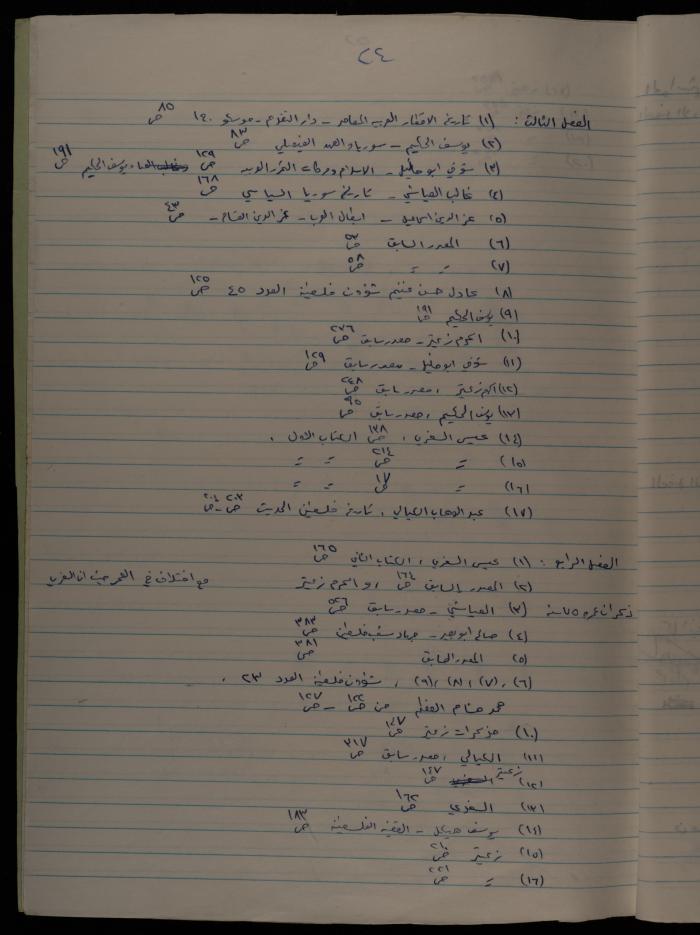 ٢٤
الفصل الثالث: (١) تاريخ الاقطار العربية المعاصر – دار التقدم – موسكو ١٤٠ ص ٨٥
(٢) يوسف الحكيم – سوريا والعهد الفيصلي ص ٨٣
(٣) شوقي ابو خليل – الاسلام وحركات التحرر العربية ص ١٢٩ يوسف الحكيم ص ١٩١
(٤) غالب العياشي – تاريخ سوريا السياسي ص ١٦٨
(٥) عز الدين اسماعيل – ابطال العرب – عز الدين القسام – ص ٤٣
(٦) المصدر السابق ص ٥٢
(٧) = = ص ٥٨
(٨) عادل حسن غنيم شؤون فلسطينية العدد ٤٥ ص ١٢٥
(٩) يوسف الحكيم ص ١٩١
(١٠) اكرم زعيتر – مصدر سابق ص ٢٧٦
(١١) شوقي ابو خليل – مصدر سابق ص ١٢٩
(١٢) اكرم زعيتر، مصدر سابق ص ٢٤٨
(١٣) يوسف الحكيم، مصدر سابق ص ٩٥
(١٤) عيسى السفري، ص ١٣٨ الكتاب الاول.
(١٥) = ص ٢١٤ = =
(١٦) = ص ١٧ = =
(١٧) عبد الوهاب الكيالي، تاريخ فلسطين الحديث ص ٢٠٣ – ص ٢٠٤
الفصل الرابع: (١) عيسى السفري، الكتاب الثاني ص ١٦٥
(٢) المصدر السابق ص ١٦٤، واكرم زعيتر مع اختلاف في العمر حيث ان السفري
ذكر ان عمره ٧٥ سنة (٣) العياشي – مصدر سابق ص ٥٢٦
(٤) صالح ابو بصير – جهاد شعب فلسطين ص ٣٨٣
(٥) المصدر السابق ص ٣٨١
(٦)، (٧)، (٨)، (٩)، شؤون فلسطينية العدد ٢٣،
من ص ١٢٢ – ص ١٢٧
(١٠) مذكرات زعيتر ص ١٤٧
(١١) الكيالي، مصدر سابق ص ٣١٧
(١٢) زعيتر ص ١٤٧
(١٣) السفري ص ١٦٢
(١٤) يوسف هيكل – القضية الفلسطينية ص ١٨٣
(١٥) زعيتر ص ٢١٠
(١٦) = ص ٢٢١